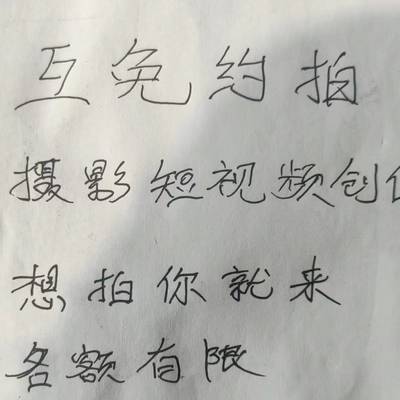 互免约拍
摄影短视频创
想拍你就来
各额有限